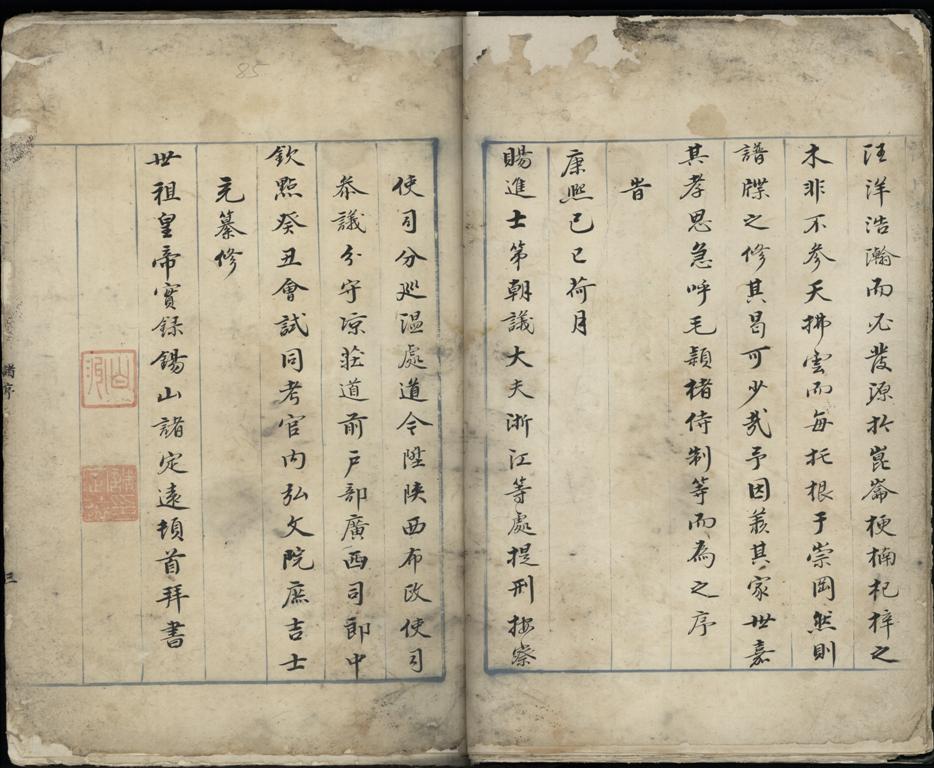 汪洋浩瀚而必發源於崑崙梗楠杞梓之
木非不參天拂雲而每托根于崇岡然則
譜牒之修其曷可少哉予因羨其家世嘉
其孝思急呼毛穎楮侍制等而為之序
旹
康熙己巳荷月
賜進士第朝議大夫浙江等處提刑按察
使司分巡溫處道今陞陝西布政使司
叅議分守凉莊道前戶部廣西司郎中
欽點癸丑會試同考官內弘文院庶吉士
充纂修
世祖皇帝實録錫山諸定遠頓首拜書
諸序
三
85